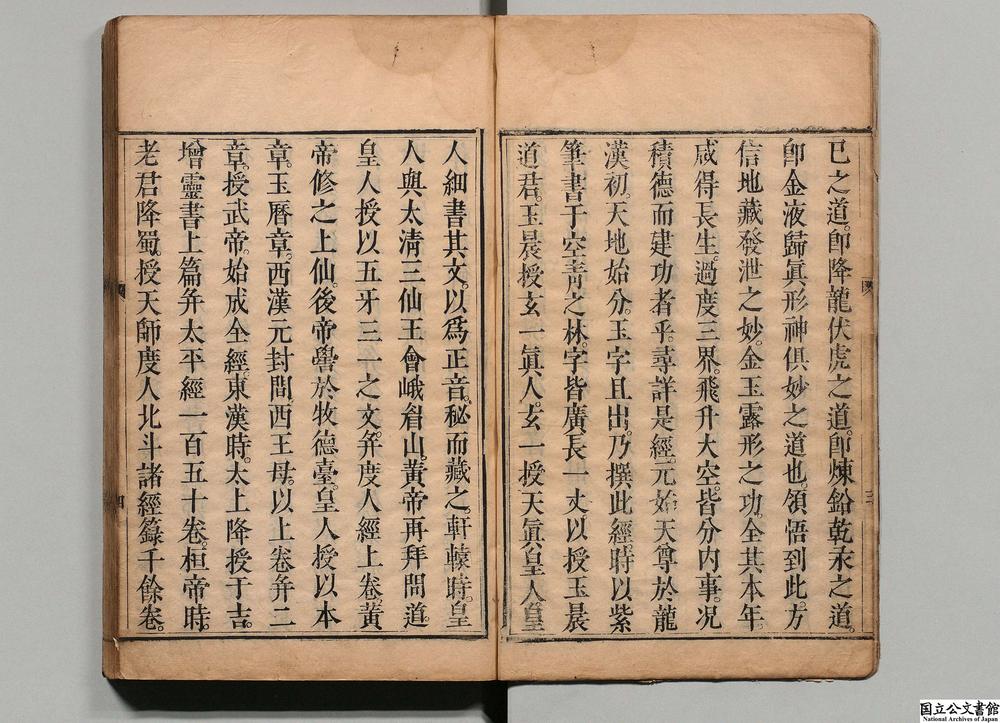 已之道。卽降龍伏虎之道。卽煉鉛乾汞之道。
卽金液歸眞形神俱妙之道也。領悟到此。方
信地藏發泄之妙。金玉露形之功。全其本年。
咸得長生。過度三界。飛升大空。皆分內事。况
積德而建功者乎。尋詳是經。元始天尊於龍
漢初。天地始分。玉字且出。乃撰此經。時以紫
筆書于空靑之林。字皆廣長一丈。以授玉晨
道君。玉晨授玄一眞人。玄一授天眞皇人。皇
人細書其文。以爲正音。秘而藏之。軒轅時。皇
人與太淸三仙王會峨眉山。黃帝再拜問道。
皇人授以五牙三一之文。幷度人經上卷。黃
帝修之上仙。後帝嚳於牧德臺。皇人授以本
章。玉曆章。西漢元封間。西王母。以上卷幷二
章。授武帝。始成全經。東漢時。太上降授于吉。
增靈書上篇。幷太平經一百五十卷。桓帝時。
老君降蜀。授天師度人北斗諸經籙千餘卷。
三
四
国立公文書館
National Archives of Japan